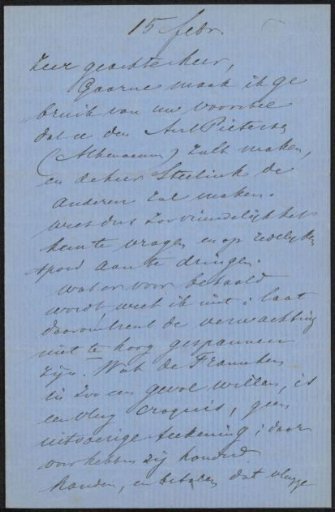 15 febr.
Zeer geachte heer,
Gaarne maak ik ge
bruik van uw voorstel
dat u den Aert Pietersz
(Athenaeum) zult maken,
en de heer Steelink de
anderen zal maken.
wees dus zoo vriendelijk het
hem te vragen en op
spoed aan te dringen.
wat er voor betaald
wordt weet ik niet: laat
daaromtrent de verwachting
niet te hoog gespannen
zijn. Wat de Franschen
in zoo een geval willen, is
een vlug croquis, geen
uitvoerige teekening; daar
voor hebben zij honderd
handen, en betalen dat vlugge